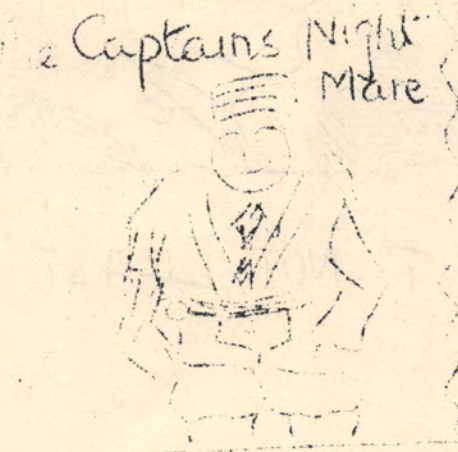 Captains Night
Mare